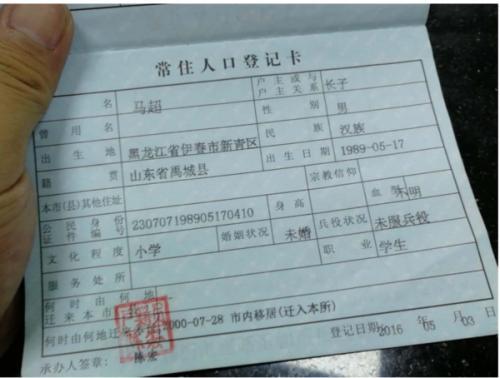 常住人口登记卡
名 马超 户主或与户主关系 长子
曾用名 性别 男
出生地 黑龙江省伊春市新青区 民族 汉族
籍贯 山东省禹城县 出生日期 1989-05-17
本市(县)其他住址 宗教信仰
公民身份证件编号 230707198905170410 身高 血型 不明
文化程度 小学 婚姻状况 未婚 兵役状况 未服兵役
服务处所 职业 学生
何时由何地迁来本市
何时由何地迁来 2000-07-28 市内移居(迁入本所)
承办人签章: 陈宏 登记日期: 2016 年 05 月 03 日